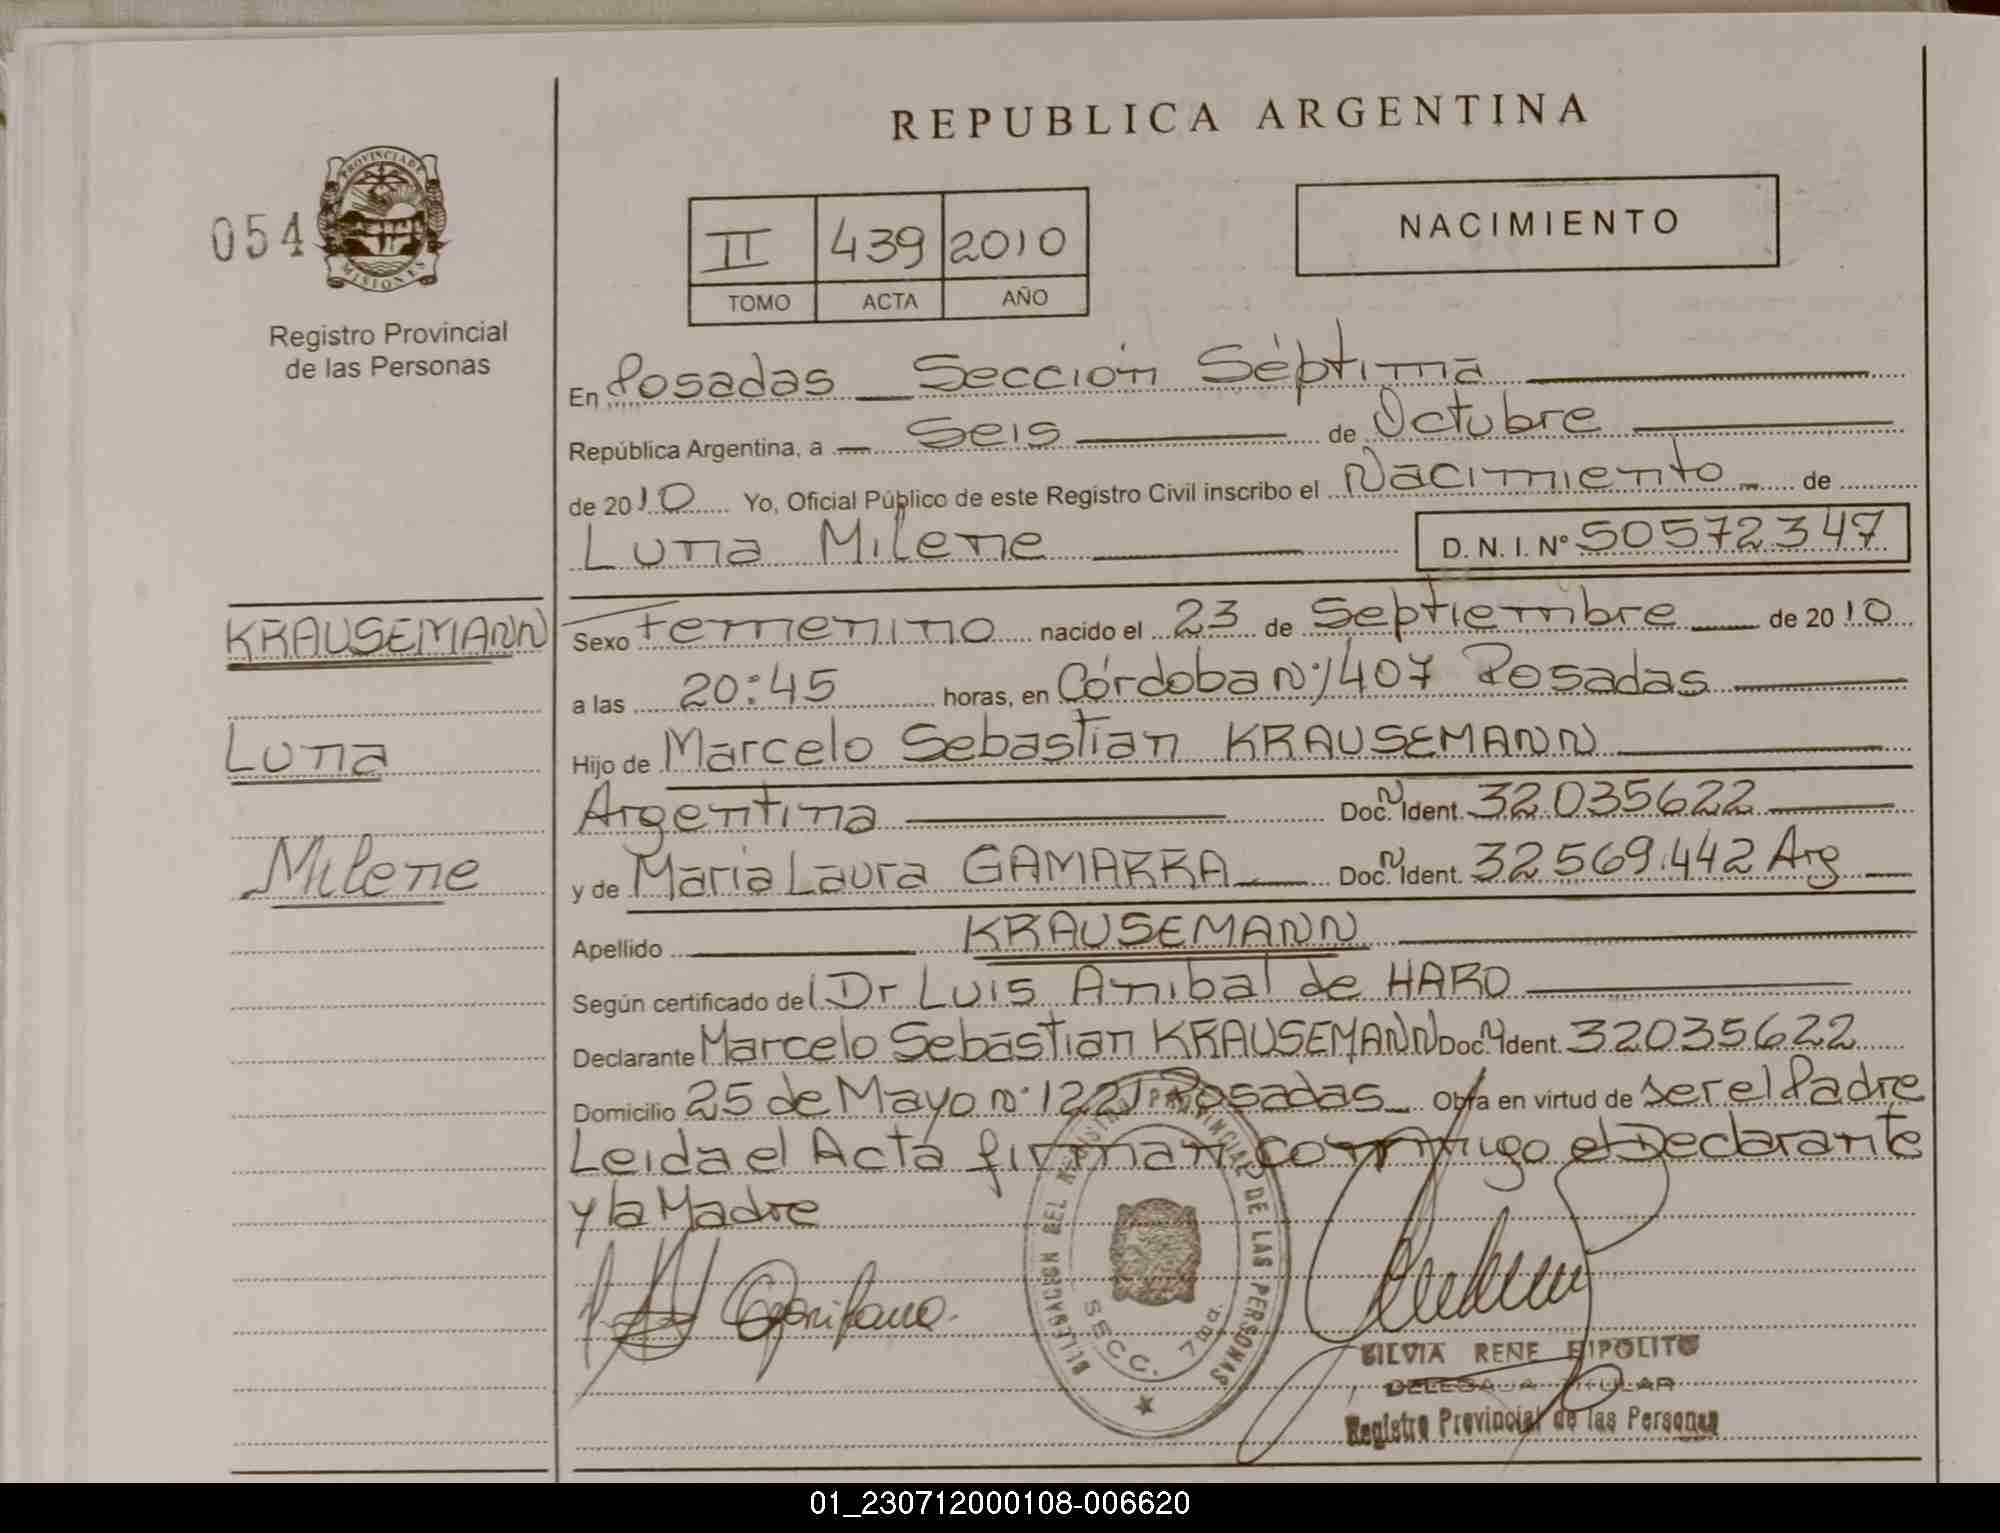 REPUBLICA ARGENTINA
054
PROVINCIA DE
MISIONES
Registro Provincial
de las Personas
II 439 2010
TOMO ACTA AÑO
NACIMIENTO
En Posadas Sección Séptima
República Argentina, a Seis de Octubre
de 2010 Yo, Oficial Público de este Registro Civil inscribo el Nacimiento de
Luna Milene D. N. I. Nº 50572347
KRAUSEMANN
Luna
Milene
Sexo Femenino nacido el 23 de Septiembre de 2010
a las 20:45 horas, en Córdoba Nº 1407 Posadas
Hijo de Marcelo Sebastian KRAUSEMANN
Argentina Doc. N Ident. 32035622
y de María Laura GAMARRA Doc. N Ident. 32569.442 Arg
Apellido KRAUSEMANN
Según certificado del Dr Luis Anibal de HARO
Declarante Marcelo Sebastian KRAUSEMANN Doc. N Ident. 32035622
Domicilio 25 de Mayo Nº 1221 Posadas Obra en virtud de ser el Padre
Leida el Acta firman conmigo el Declarante
y la Madre
DELEGACION DEL REGISTRO PROVINCIAL DE LAS PERSONAS
SECC. 7ma.
SILVIA RENE HIPOLITO
DELEGADA TITULAR
Registro Provincial de las Personas
01_230712000108-006620